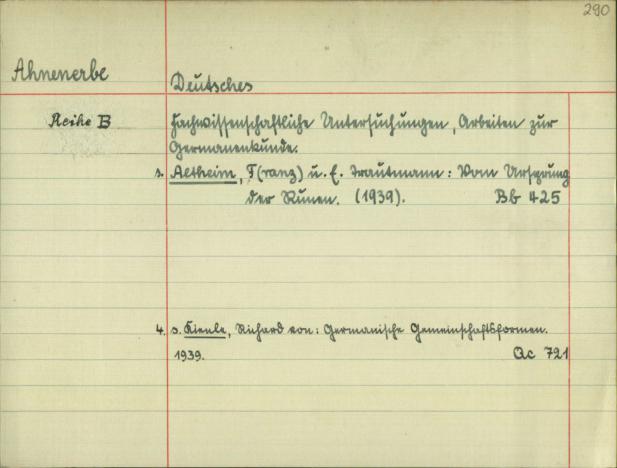 290
Ahnenerbe
Deutsches
Reihe B
Fachwissenschaftliche Untersuchungen, Arbeiten zur
Germanenkunde.
s. Altheim, F(ranz) u. E. Trautmann: Vom Ursprung
der Runen. (1939). Bb 425
4. s. Kienle, Richard von: Germanische Gemeinschaftsformen.
1939. Qc 721